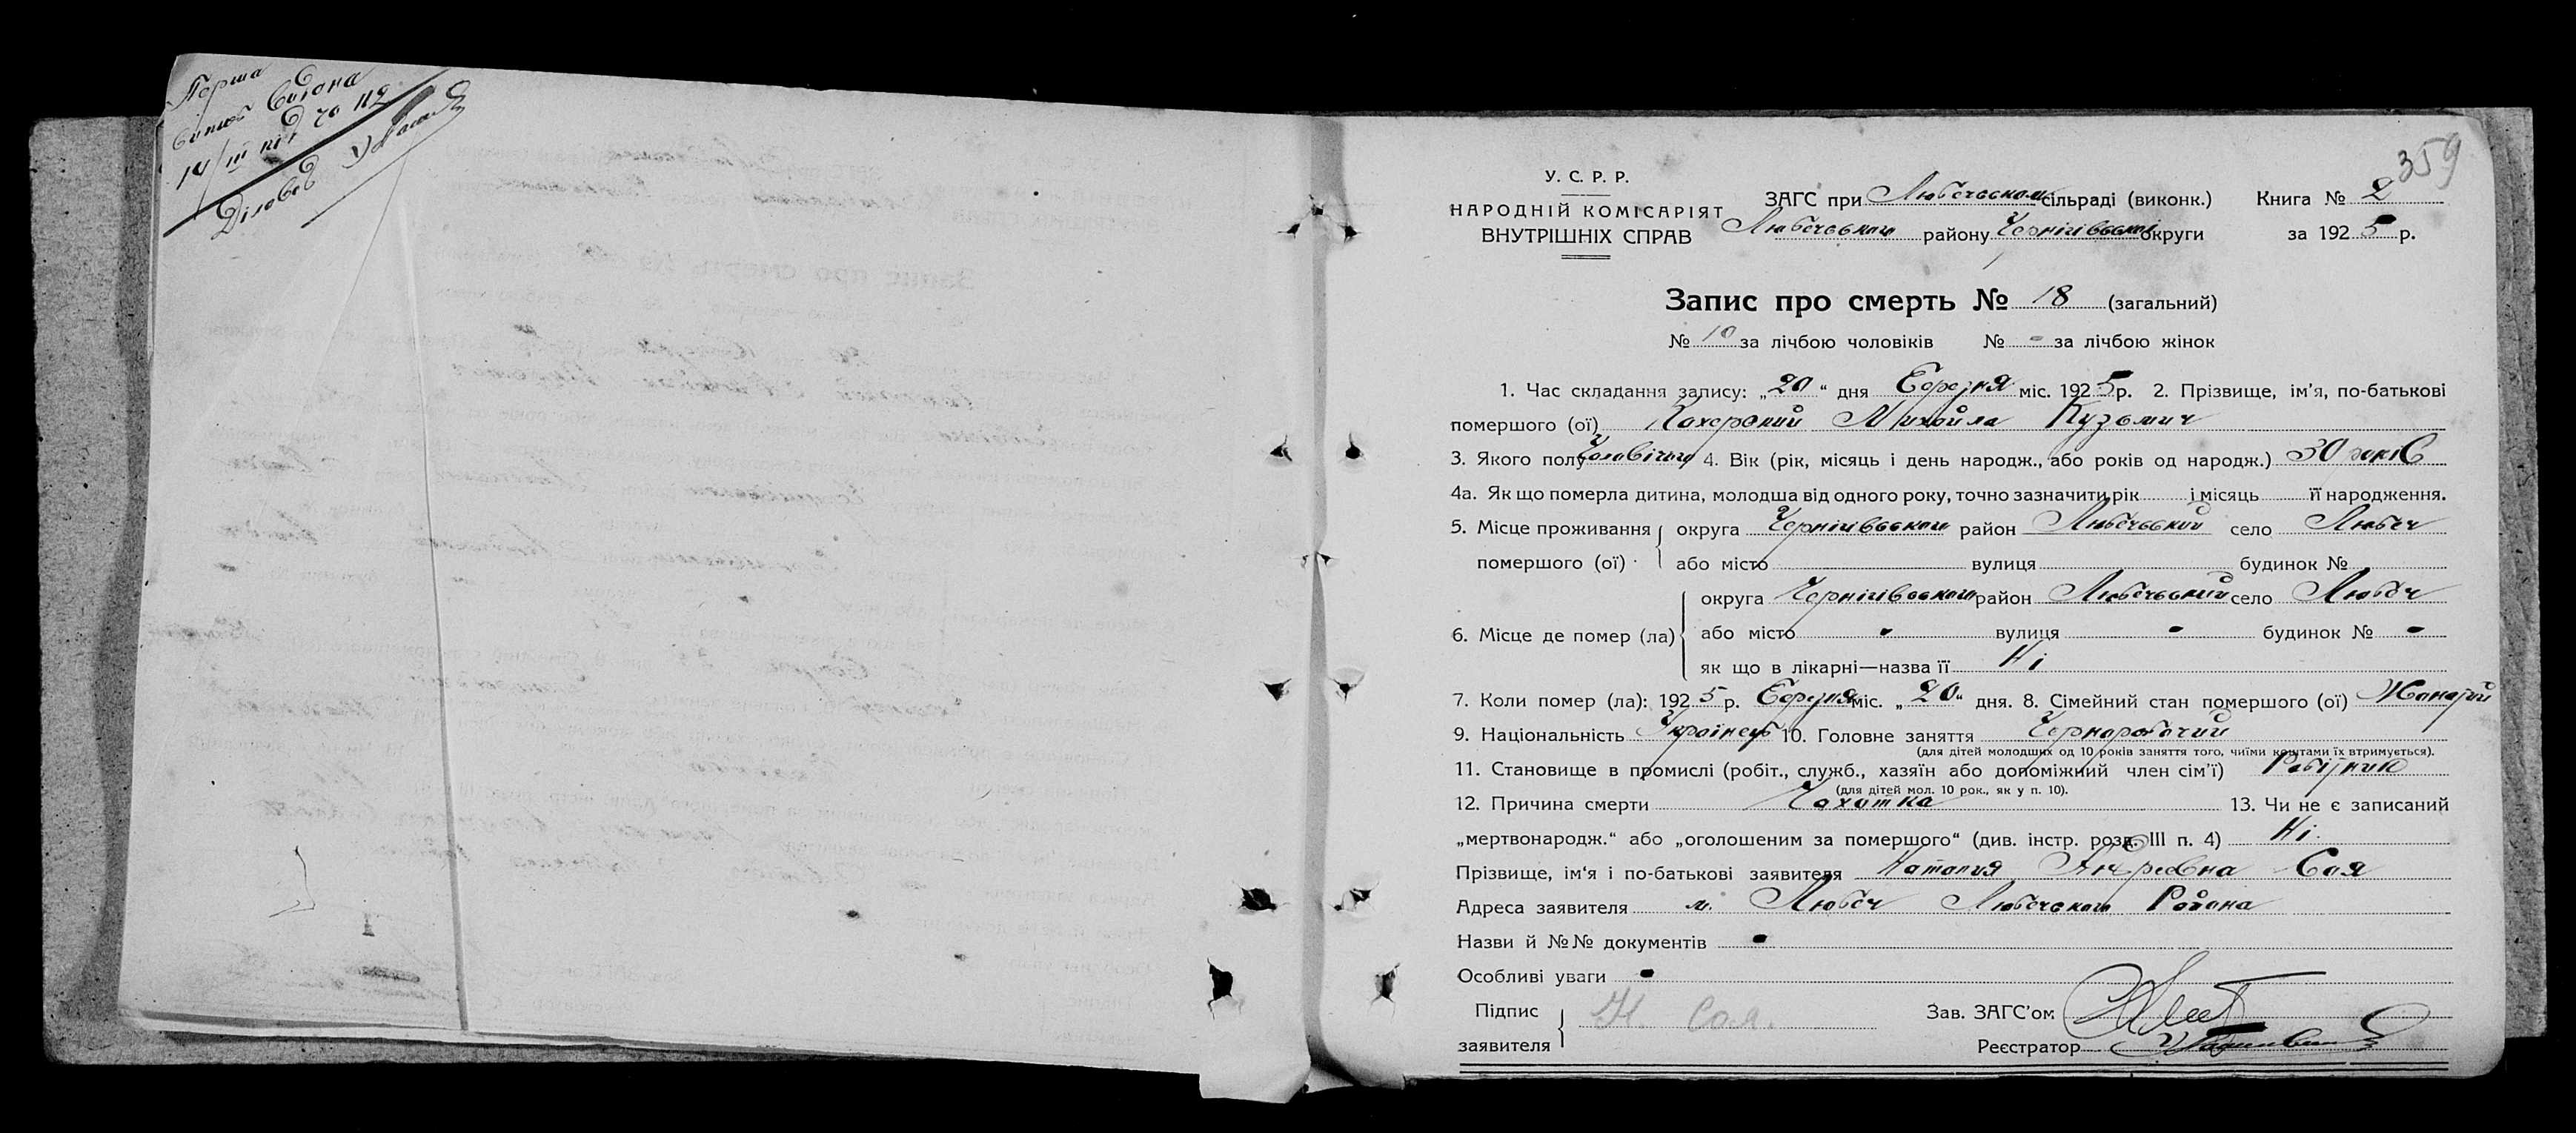 Перша
359
У. С. Р. Р.
НАРОДНІЙ КОМІСАРІЯТ
ВНУТРІШНІХ СПРАВ
ЗАГС при Любечському сільраді (виконк.) Книга № 2
Любечського району Чернігівської округи за 1925 р.
Запис про смерть № 18 (загальний)
№ 10 за лічбою чоловіків № - за лічбою жінок
1. Час складання запису: „20“ дня Березня міс. 1925 р. 2. Прізвище, ім'я, по-батькові
помершого (ої) Михайла Кузьмич
3. Якого полу Чоловічого 4. Вік (рік, місяць і день народж., або років од народж.) 30 років
4а. Як що померла дитина, молодша від одного року, точно зазначити рік і місяць її народження.
5. Місце проживання округа Чернігівського район Любечський село Любеч
помершого (ої) або місто вулиця будинок №
округа Чернігівського район Любечський село Любеч
6. Місце де помер (ла) або місто - вулиця - будинок № -
як що в лікарні—назва її Ні
7. Коли помер (ла): 1925 р. Березня міс. „20“ дня. 8. Сімейний стан помершого (ої) Жонатий
9. Національність Українець 10. Головне заняття Чорноробочий
(для дітей молодших од 10 років заняття того, чиїми коштами їх втримується).
11. Становище в промислі (робіт., служб., хазяїн або допоміжний член сім'ї) Робітник
(для дітей мол. 10 рок., як у п. 10).
12. Причина смерти Чахотка 13. Чи не є записаний
„мертвонародж.“ або „оголошеним за помершого“ (див. інстр. розд. III п. 4) Ні.
Прізвище, ім'я і по-батькові заявителя Наталия Андреевна Соя
Адреса заявителя м. Любеч Любечского Района
Назви й №№ документів -
Особливі уваги -
Підпис
заявителя Н. Соя.
Зав. ЗАГС'ом
Реєстратор